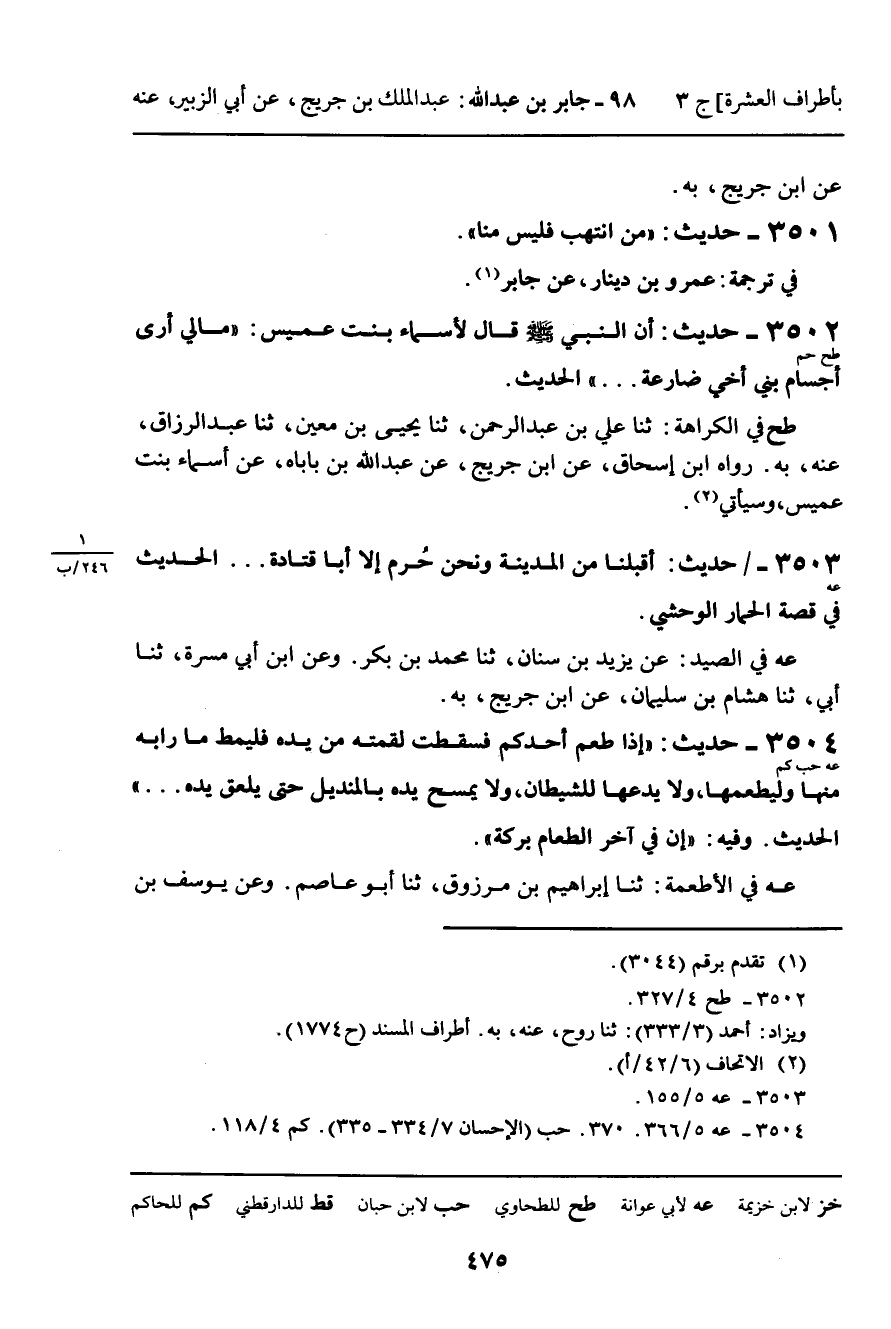 بأطراف العشرة] ج ٣ ٩٨ ـ جابر بن عبدالله: عبدالملك بن جريج، عن أبي الزبير، عنه
عن ابن جريج، به.
٣٥٠١ ـ حديث: «من انتهب فليس منا».
في ترجمة: عمرو بن دينار، عن جابر(١).
٣٥٠٢ ـ حديث: أن النبي ﷺ قال لأسماء بنت عميس: «مالي أرى
طح حم
أجسام بني أخي ضارعة...» الحديث.
طح في الكراهة: ثنا علي بن عبدالرحمن، ثنا يحيى بن معين، ثنا عبدالرزاق،
عنه، به. رواه ابن إسحاق، عن ابن جريج، عن عبدالله بن باباه، عن أسماء بنت
عميس، وسيأتي(٢).
١
٢٤٦/ب
٣٥٠٣ ـ / حديث: أقبلنا من المدينة ونحن حُرم إلا أبا قتادة... الحديث
عه
في قصة الحمار الوحشي.
عه في الصيد: عن يزيد بن سنان، ثنا محمد بن بكر. وعن ابن أبي مسرة، ثنا
أبي، ثنا هشام بن سليمان، عن ابن جريج، به.
٣٥٠٤ ـ حديث: «إذا طعم أحدكم فسقطت لقمته من يده فليمط ما رابه
عه حب كم
منها وليطعمها، ولا يدعها للشيطان، ولا يمسح يده بالمنديل حتى يلعق يده...»
الحديث. وفيه: «إن في آخر الطعام بركة».
عه في الأطعمة: ثنا إبراهيم بن مرزوق، ثنا أبو عاصم. وعن يوسف بن
(١) تقدم برقم (٣٠٤٤).
٣٥٠٢ ـ طح ٣٢٧/٤.
ويزاد: أحمد (٣٣٣/٣): ثنا روح، عنه، به. أطراف المسند (ح١٧٧٤).
(٢) الاتحاف (٤٢/٦/أ).
٣٥٠٣ ـ عه ١٥٥/٥.
٣٥٠٤ ـ عه ٣٦٦/٥. ٣٧٠. حب (الإحسان ٣٣٤/٧ ـ ٣٣٥). كم ١١٨/٤.
خز لابن خزيمة عه لأبي عوانة طح للطحاوي حب لابن حبان قط للدارقطني كم للحاكم
٤٧٥